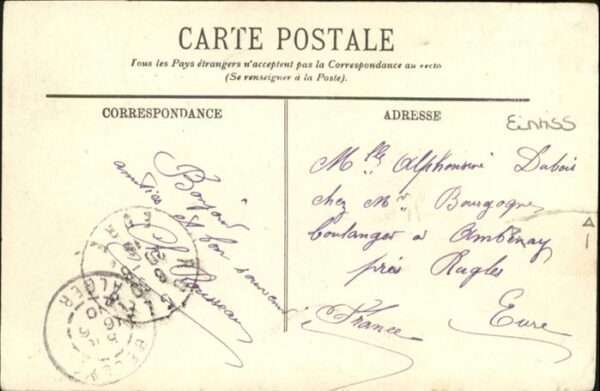 CARTE POSTALE
Tous les Pays étrangers n'acceptent pas la Correspondance au recto
(Se renseigner à la Poste).
CORRESPONDANCE
Bonjour
amitiés et bon souvenir
Rousseau
ALGER
ADRESSE
Mlle Alphonsine Dubois
chez Mr Bourgogne
boulanger à Ambenay
près Rugles
France Eure